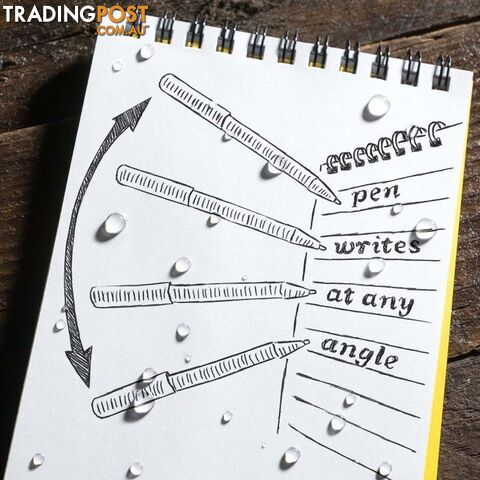 TRADINGPOST
.COM.AU
pen
writes
at any
angle